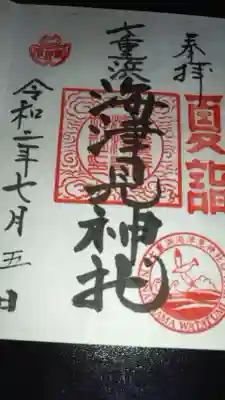 奉拝
夏詣
七重浜
海津見神社
令和二年七月五日